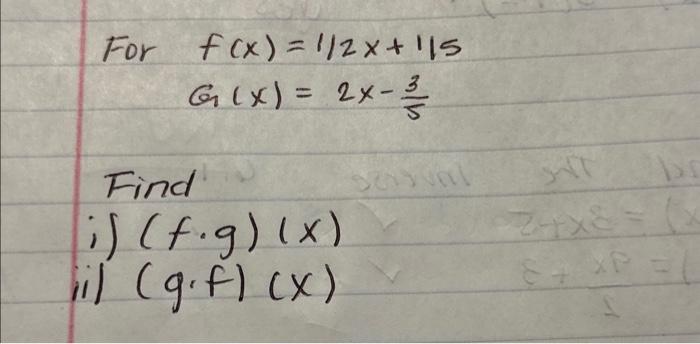 For f(x) = 1/2x + 1/5
G(x) = 2x - 3/5
Find
i) (f.g) (x)
ii) (g.f) (x)